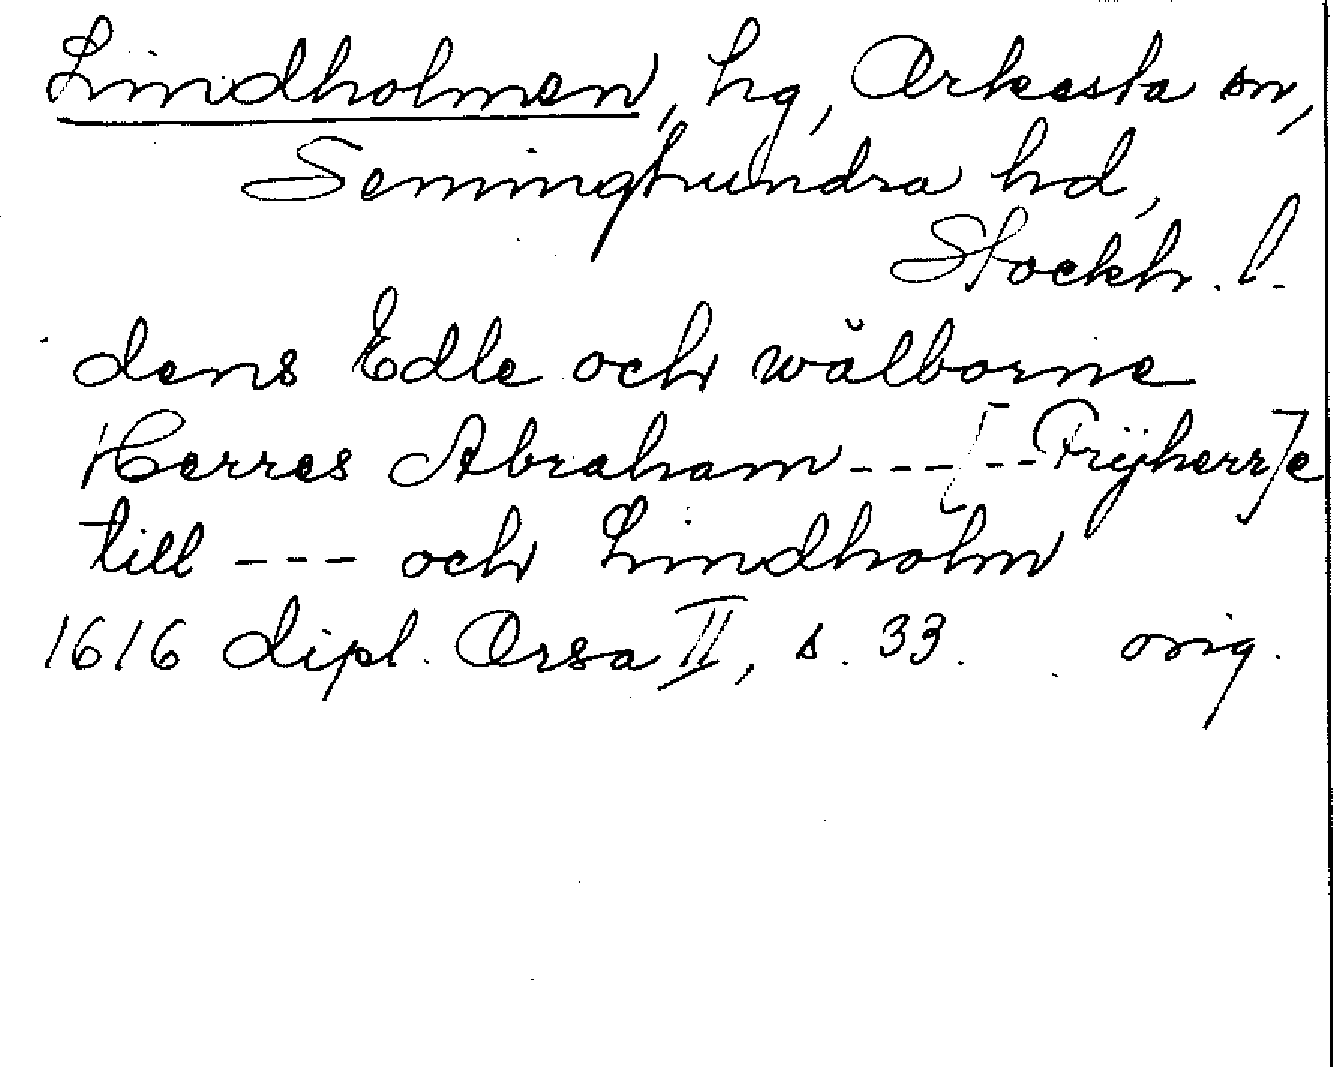 Lindholmen, hg, Orkesta sn,
Seminghundra hd,
Stockh. l.
dens Edle och wälborne
Herres Abraham ---[--Frijherr]e
till --- och Lindholm
1616 dipl. Orsa II, s. 33. orig.